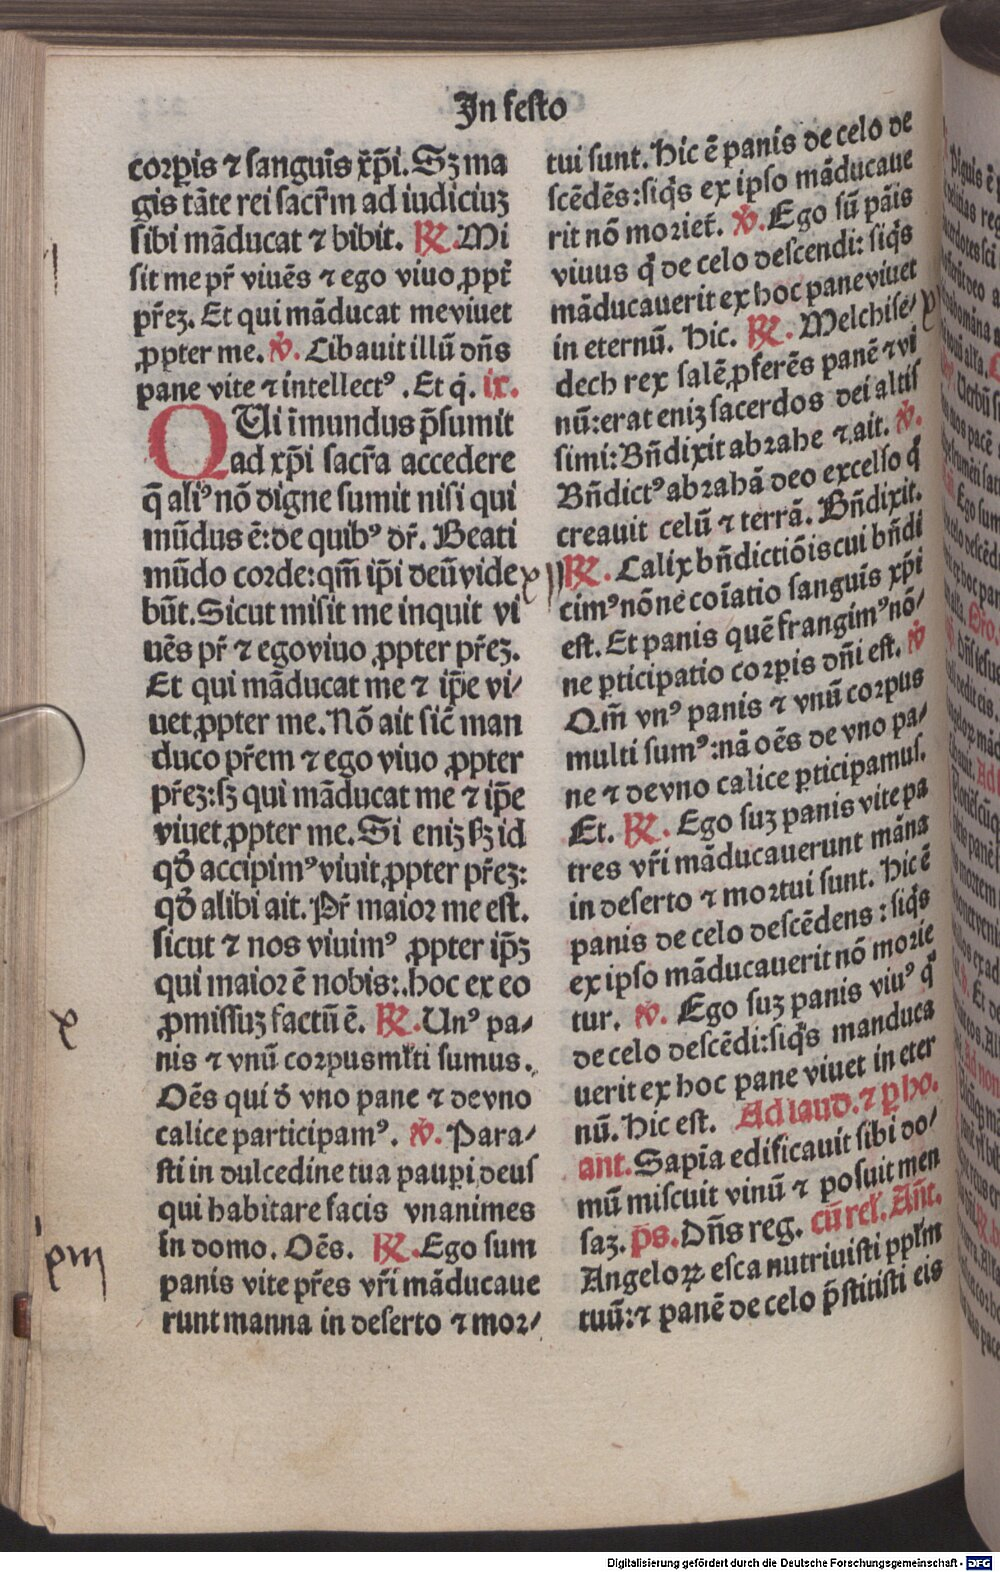 In festo
corpꝑis ⁊ sanguīs x̄p̄i. Sꝫ ma
gis tāte rei sacr̄m ad iudiciuꝫ
sibi māducat ⁊ bibit. ℟. Mi
sit me pr̄ viuēs ⁊ ego viuo ꝓpt̄
pr̄eꝫ. Et qui māducat me viuet
ꝓpter me. ℣. Cibauit illū dn̄s
pane vite ⁊ intellectꝰ. Et q̄. ix.
QUi īmundus p̄sumit
ad xp̄i sacr̄a accedere
q̄ aliꝰ nō digne sumit nisi qui
mūdus ē: de quibꝰ dr̄. Beati
mūdo corde: qm̄ ip̄i deū vide
būt. Sicut misit me inquit vi
uēs pr̄ ⁊ ego viuo ꝓpter pr̄eꝫ.
Et qui māducat me ⁊ ip̄e vi/
uet ꝓpter me. Nō ait sic̄ man
duco pr̄em ⁊ ego viuo ꝓpter
pr̄eꝫ: sꝫ qui māducat me ⁊ ip̄e
viuet ꝓpter me. Si eniꝫ hꝫ id
qd̄ accipimꝰ viuit ꝓpter pr̄eꝫ:
qd̄ alibi ait. Pr̄ maior me est.
sicut ⁊ nos viuimꝰ ꝓpter ip̄ꝫ
qui maior ē nobis: hoc ex eo
ꝓmissuꝫ factū ē. ℟. Unꝰ pa/
nis ⁊ vnū corpus ml̄ti sumus.
Oēs qui d̄ vno pane ⁊ de vno
calice participamꝰ. ℣. Para/
sti in dulcedine tua pauꝑi deus
qui habitare facis vnanimes
in domo. Oēs. ℟. Ego sum
panis vite pr̄es vr̄i māducaue
runt manna in deserto ⁊ mor/
tui sunt. Hic ē panis de celo de
scēdēs: siqͥs ex ipso māducaue
rit nō moriet̄. ℣. Ego sū pāis
viuus q̄ de celo descendi: siqͥs
māducauerit ex hoc pane viuet
in eternū. Hic. ℟. Melchise/
dech rex salē ꝓferēs panē ⁊ vi
nū: erat eniꝫ sacerdos dei altis
simi: Bn̄dixit abrahe ⁊ ait. ℣.
Bn̄dictꝰ abrahā deo excelso q̄
creauit celū ⁊ terrā. Bn̄dixit.
℟. Calix bn̄dictiōis cui bn̄di
cimꝰ nōne coīatio sanguis xp̄i
est. Et panis quē frangimꝰ nō/
ne ꝑticipatio corꝑis dn̄i est. ℣
Qm̄ vnꝰ panis ⁊ vnū corpus
multi sumꝰ: nā oēs de vno pa/
ne ⁊ de vno calice ꝑticipamus.
Et. ℟. Ego suꝫ panis vite pa
tres vr̄i māducauerunt māna
in deserto ⁊ mortui sunt. Hic ē
panis de celo descēdens: siqͥs
ex ipso māducauerit nō morie
tur. ℣. Ego suꝫ panis viuꝰ q̄
de celo descēdi: siqͥs manduca
uerit ex hoc pane viuet in eter
nū. Hic est. Ad laud. ⁊ ꝑ ho.
ant. Sapia edificauit sibi do/
mū miscuit vinū ⁊ posuit men
saꝫ. ps. Dn̄s reg. cū rel̄. Ant̄.
Angeloꝝ esca nutriuisti ppl̄m
tuū: ⁊ panē de celo p̄stitisti eis
Digitalisierung gefördert durch die Deutsche Forschungsgemeinschaft - DFG